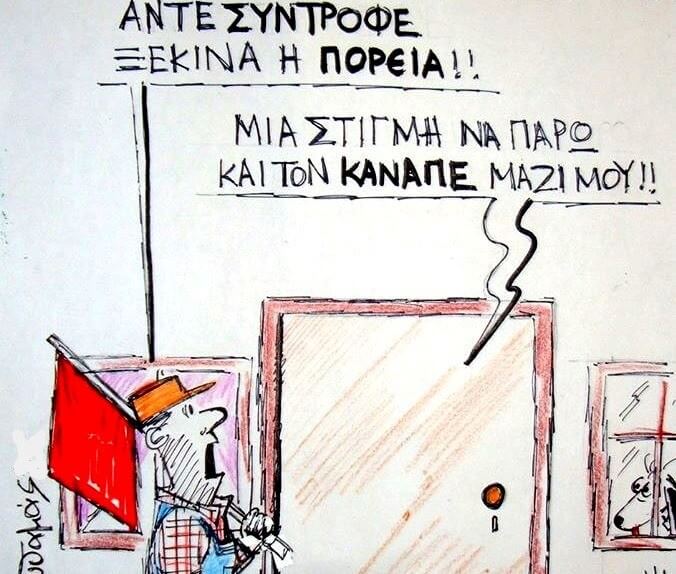 ΑΝΤΕ ΣΥΝΤΡΟΦΕ
ΞΕΚΙΝΑ Η ΠΟΡΕΙΑ!!
ΜΙΑ ΣΤΙΓΜΗ ΝΑ ΠΑΡΩ
ΚΑΙ ΤΟΝ ΚΑΝΑΠΕ ΜΑΖΙ ΜΟΥ!!